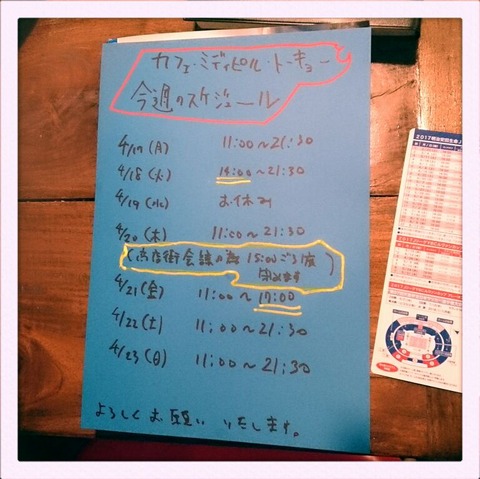 カフェ・ミディピル・トーキョー
今週のスケジュール
4/17(月) 11:00～21:30
4/18(火) 14:00～21:30
4/19(水) お休み
4/20(木) 11:00～21:30
(商店街会議の為 15:00ごろ1度
閉めます)
4/21(金) 11:00～17:00
4/22(土) 11:00～21:30
4/23(日) 11:00～21:30
よろしくお願いいたします。